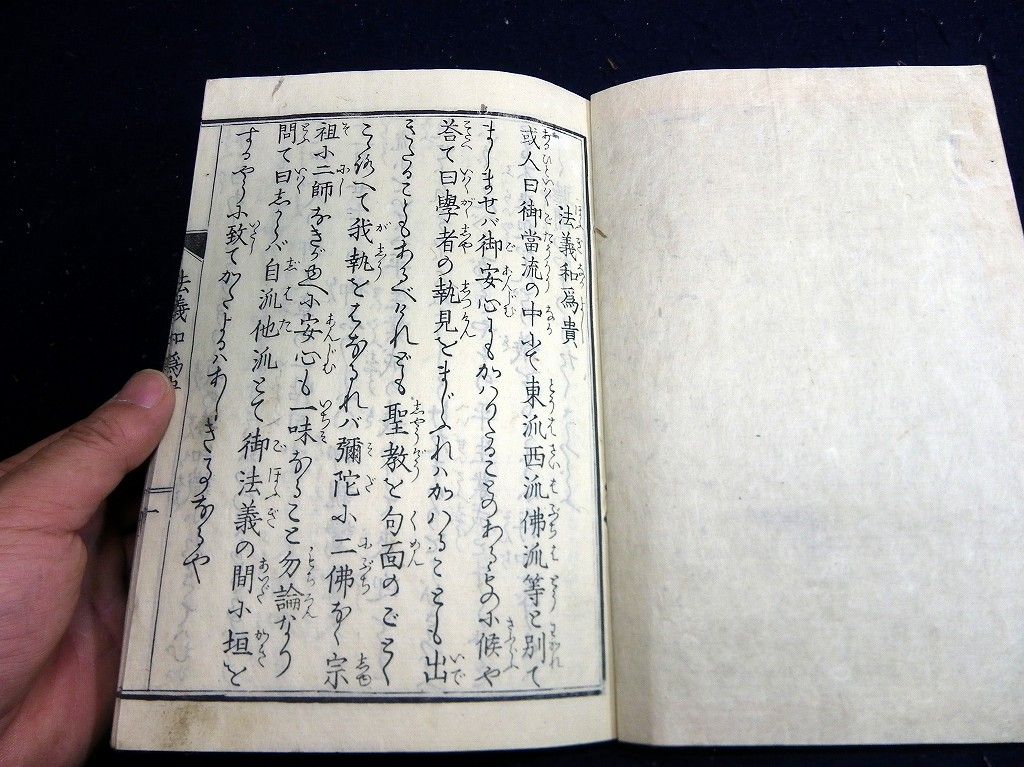 法義和爲貴
或人曰御當流の中にて東派西派佛派等と別て
ましませバ御安心にもかハりたることのあるものに候や
荅て曰學者の執見をまじふれハかハることも出
きたることもあるべけれども聖教を句面のごとく
こゝろへて我執をはなるれバ彌陀に二佛なく宗
祖に二師なきが故に安心も一味なること勿論なり
問て曰しからバ自派他派とて御法義の間に垣を
するやうに致てかたよるハあしきなるや
法義和爲貴
一